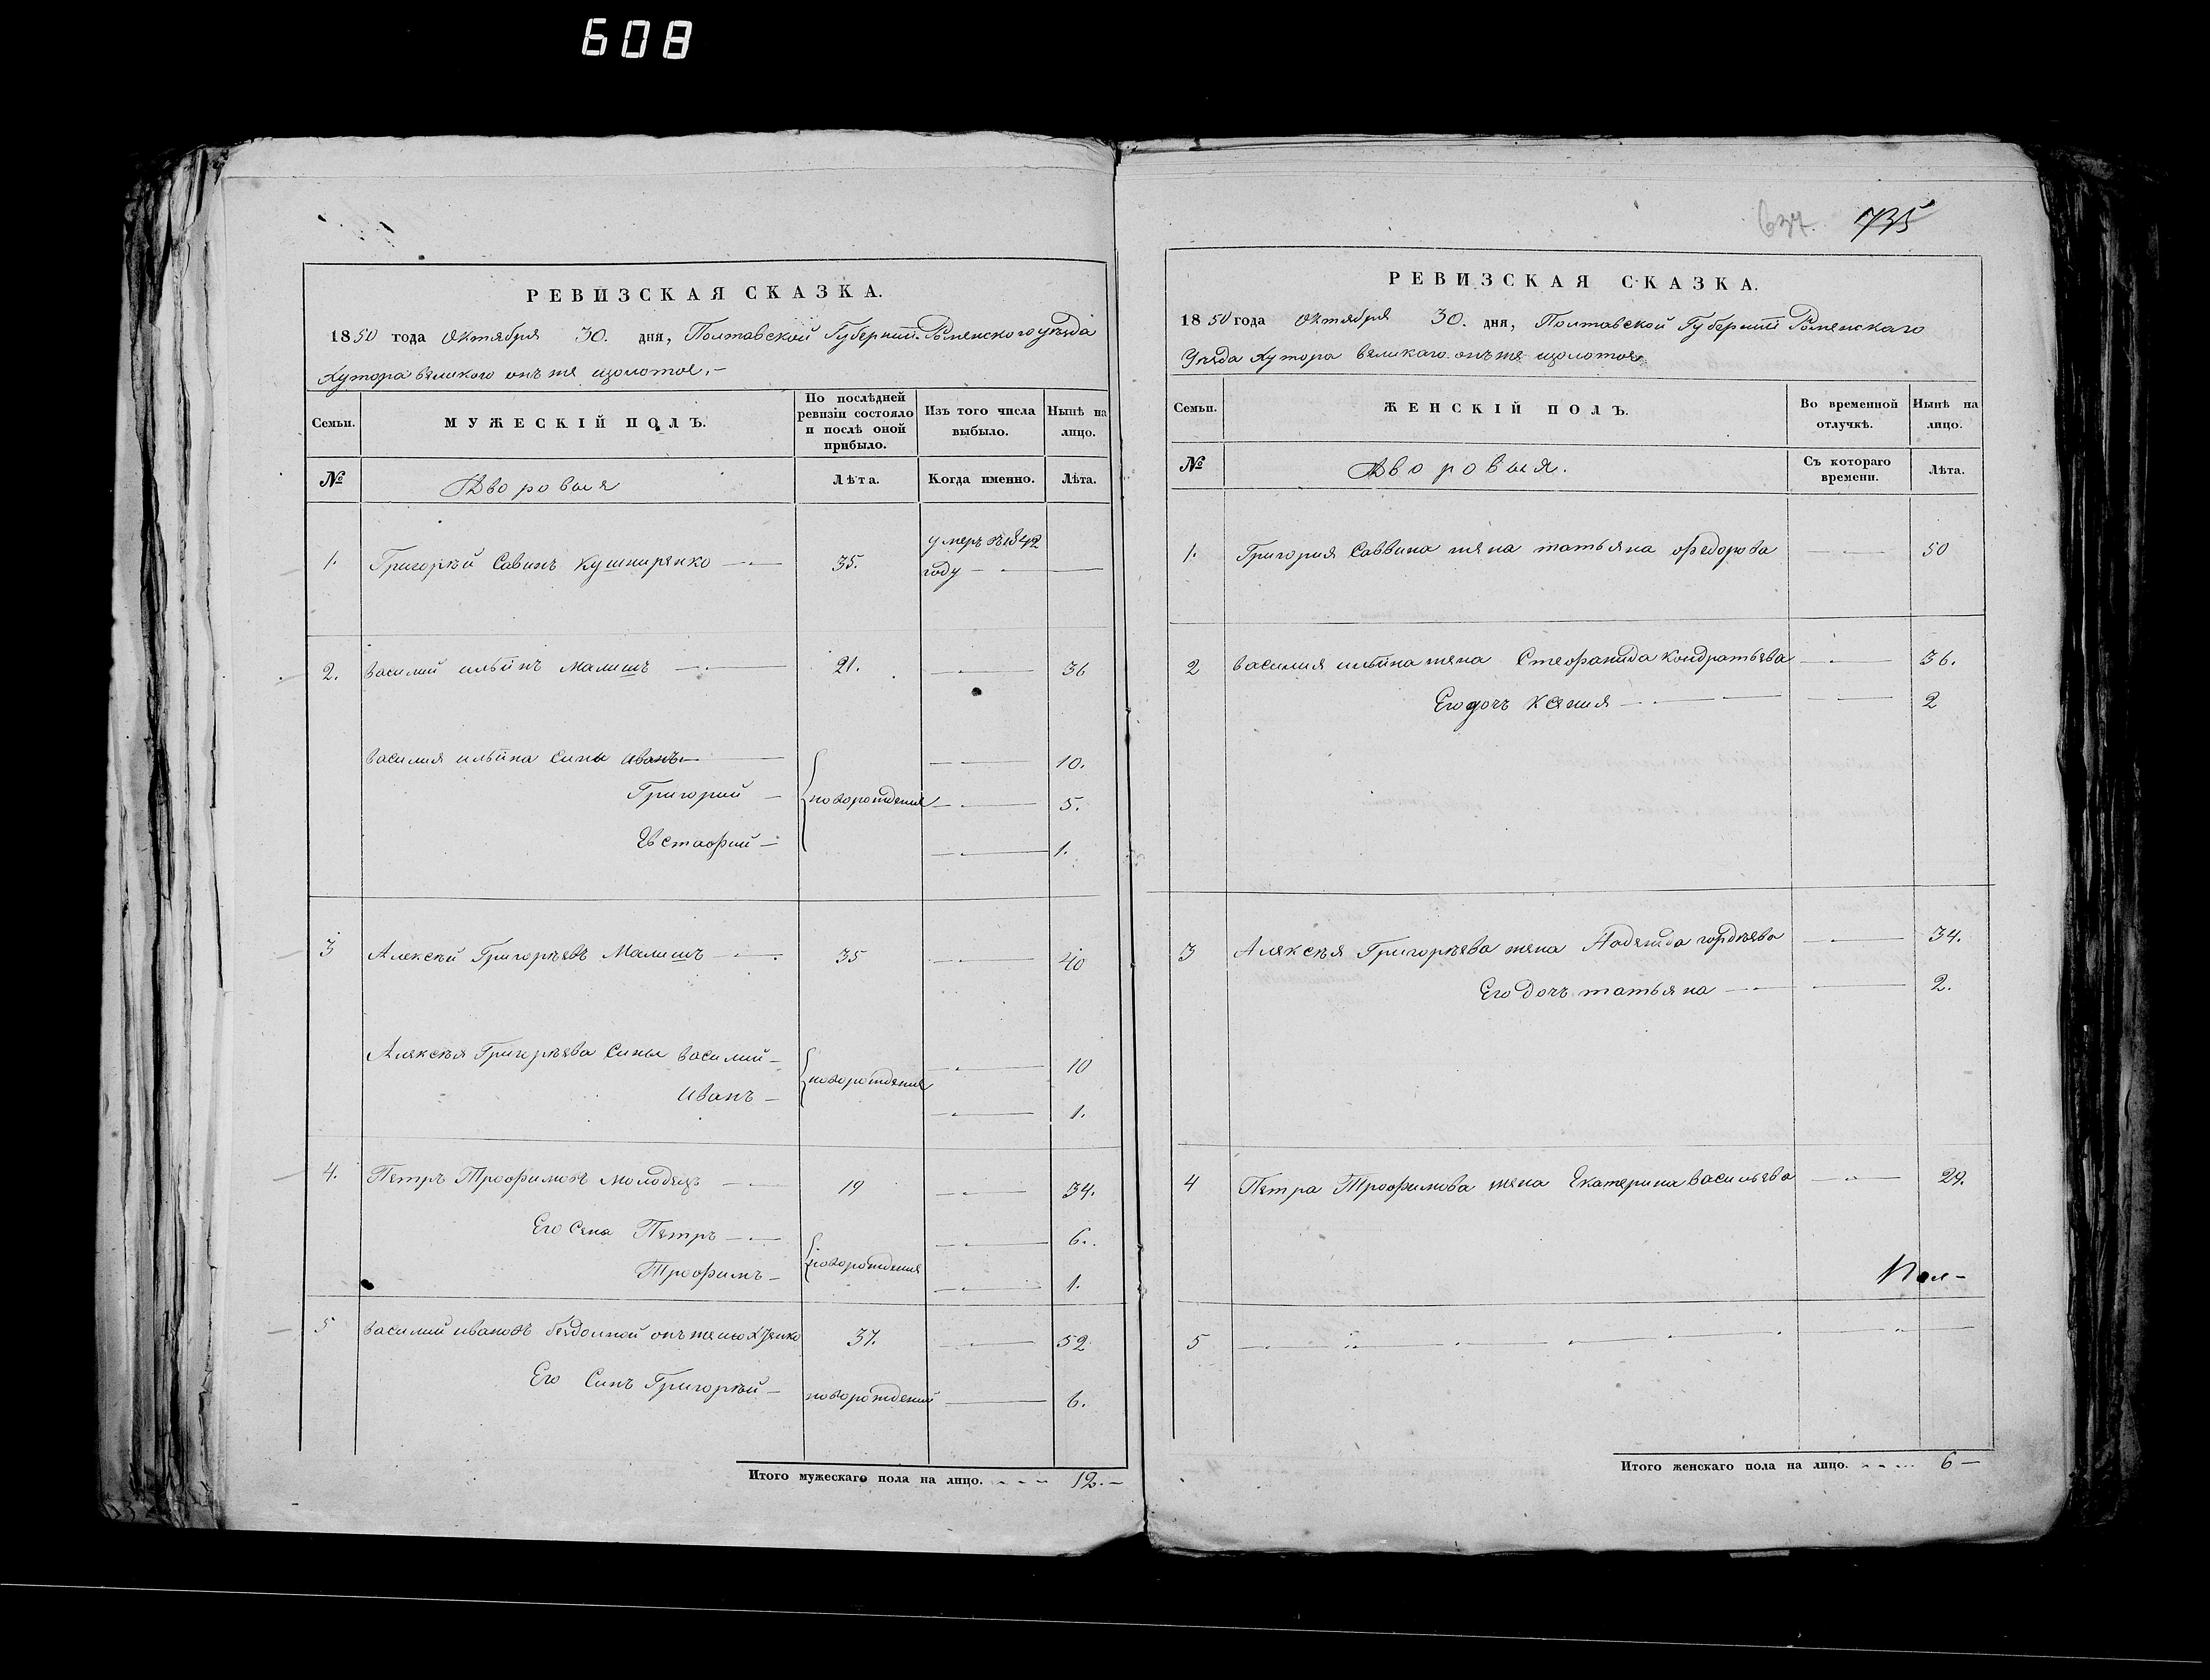 608
РЕВИЗСКАЯ СКАЗКА.
1850 года Октября 30. дня, Полтавской Губерніи Роменского уѣзда
Хутора великого онъ же щолотое.–
Семьи. МУЖЕСКІЙ ПОЛЪ. По послѣдней ревизіи состояло и послѣ оной прибыло. Изъ того числа выбыло. Нынѣ на лицо.
№ Дворовыя Лѣта. Когда именно. Лѣта.
1. Григорѣй Савинъ Кушниренко 35. умеръ въ 1842 году
2. Василий ильинъ Малишъ 21. 36
Василия ильина Сины Иванъ 10.
Григорий новорождения 5.
Евстафий 1.
3 Алексѣй Григорѣевъ Малишъ 35 40
Алексѣя Григорѣева Сины Василий 10
новорождения
Иванъ 1.
4. Петръ Трофимовъ молодецъ 19 34.
Его Сена Петръ 6.
новорождения
Трофимъ 1.
5 Василий ивановъ бездонной онъ же 37. 52
Его Синъ Григорѣй новорождений 6.
Итого мужескаго пола на лицо. 12.–
637. 735
РЕВИЗСКАЯ СКАЗКА.
1850 года Октября 30. дня, Полтавской Губерніи Роменскаго
Уѣзда Хутора великаго онъ же щолотое
Семьи. ЖЕНСКІЙ ПОЛЪ. Во временной отлучкѣ. Нынѣ на лицо.
№ Дворовыя. Съ котораго времени. Лѣта.
1. Григория Саввина жена татьяна федорова 50
2 Василия ильина жена Стефанида Кондратьева 36.
Его дочъ Ксения 2
3 Алексѣя Григорѣева жена Надежда гордѣева 34.
Его дочъ татьяна 2.
4 Петра Трофимова жена Екатерина Васильева 29.
5
Итого женскаго пола на лицо. 6–